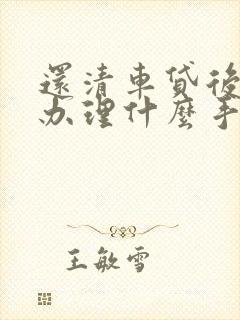 還清車貸後
办理什麼手
王敏雪